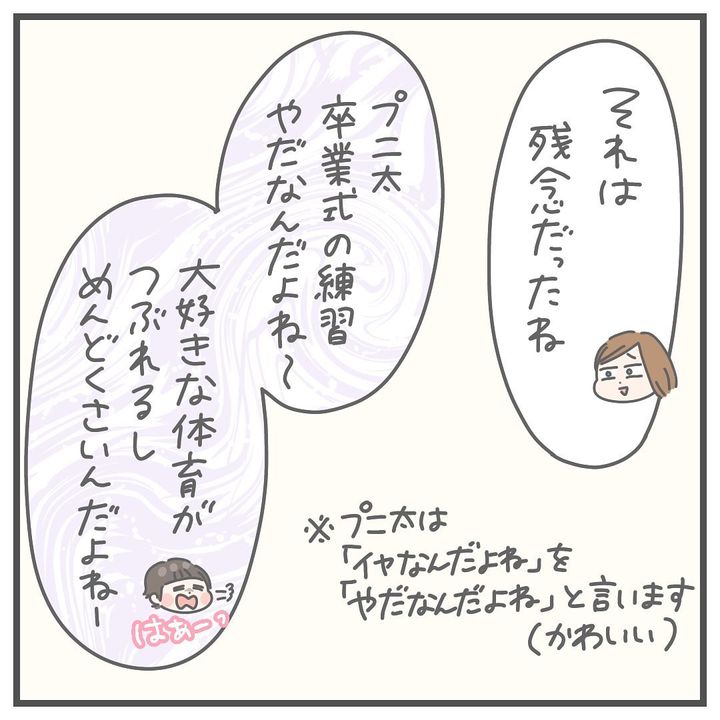 それは
残念だったね
プニ太
卒業式の練習
やだなんだよね〜
大好きな体育が
つぶれるし
めんどくさいんだよねー
はぁーっ
※プニ太は
「イヤなんだよね」を
「やだなんだよね」と言います
(かわいい)